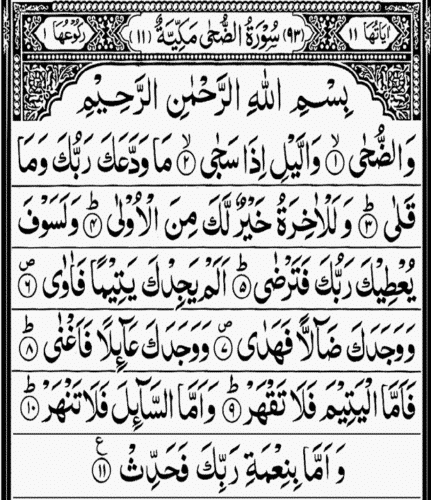 اٰيَاتُهَا ١١ (٩٣) سُوْرَةُ الضُّحٰى مَكِّيَّةٌ (١١) رُكُوْعُهَا ١
بِسْمِ اللهِ الرَّحْمٰنِ الرَّحِيْمِ
وَالضُّحٰى ۙ﴿١﴾ وَالَّيْلِ اِذَا سَجٰى ۙ﴿٢﴾ مَا وَدَّعَكَ رَبُّكَ وَمَا
قَلٰى ؕ﴿٣﴾ وَلَلْاٰخِرَةُ خَيْرٌ لَّكَ مِنَ الْاُوْلٰى ؕ﴿٤﴾ وَلَسَوْفَ
يُعْطِيْكَ رَبُّكَ فَتَرْضٰى ؕ﴿٥﴾ اَلَمْ يَجِدْكَ يَتِيْمًا فَاٰوٰى ۪﴿٦﴾
وَوَجَدَكَ ضَآلًّا فَهَدٰى ۪﴿٧﴾ وَوَجَدَكَ عَآئِلًا فَاَغْنٰى ؕ﴿٨﴾
فَاَمَّا الْيَتِيْمَ فَلَا تَقْهَرْ ؕ﴿٩﴾ وَاَمَّا السَّآئِلَ فَلَا تَنْهَرْ ؕ﴿١٠﴾
وَاَمَّا بِنِعْمَةِ رَبِّكَ فَحَدِّثْ ﴿١١﴾ ع